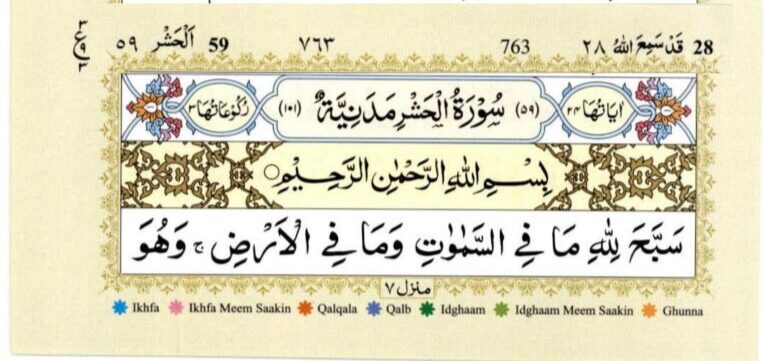 28 قَدْ سَمِعَ اللهُ ٢٨ 763 ٧٦٣ 59 اَلْحَشْر ٥٩
٣
ع
٩
٣
اٰيَاتُهَا ٢٤ (٥٩) سُوْرَةُ الْحَشْرِ مَدَنِيَّةٌ (١٠١) رُكُوْعَاتُهَا ٣
بِسْمِ اللهِ الرَّحْمٰنِ الرَّحِيْمِ ○
سَبَّحَ لِلّٰهِ مَا فِي السَّمٰوٰتِ وَمَا فِي الْاَرْضِ ۚ وَهُوَ
منزل ٧
Ikhfa Ikhfa Meem Saakin Qalqala Qalb Idghaam Idghaam Meem Saakin Ghunna